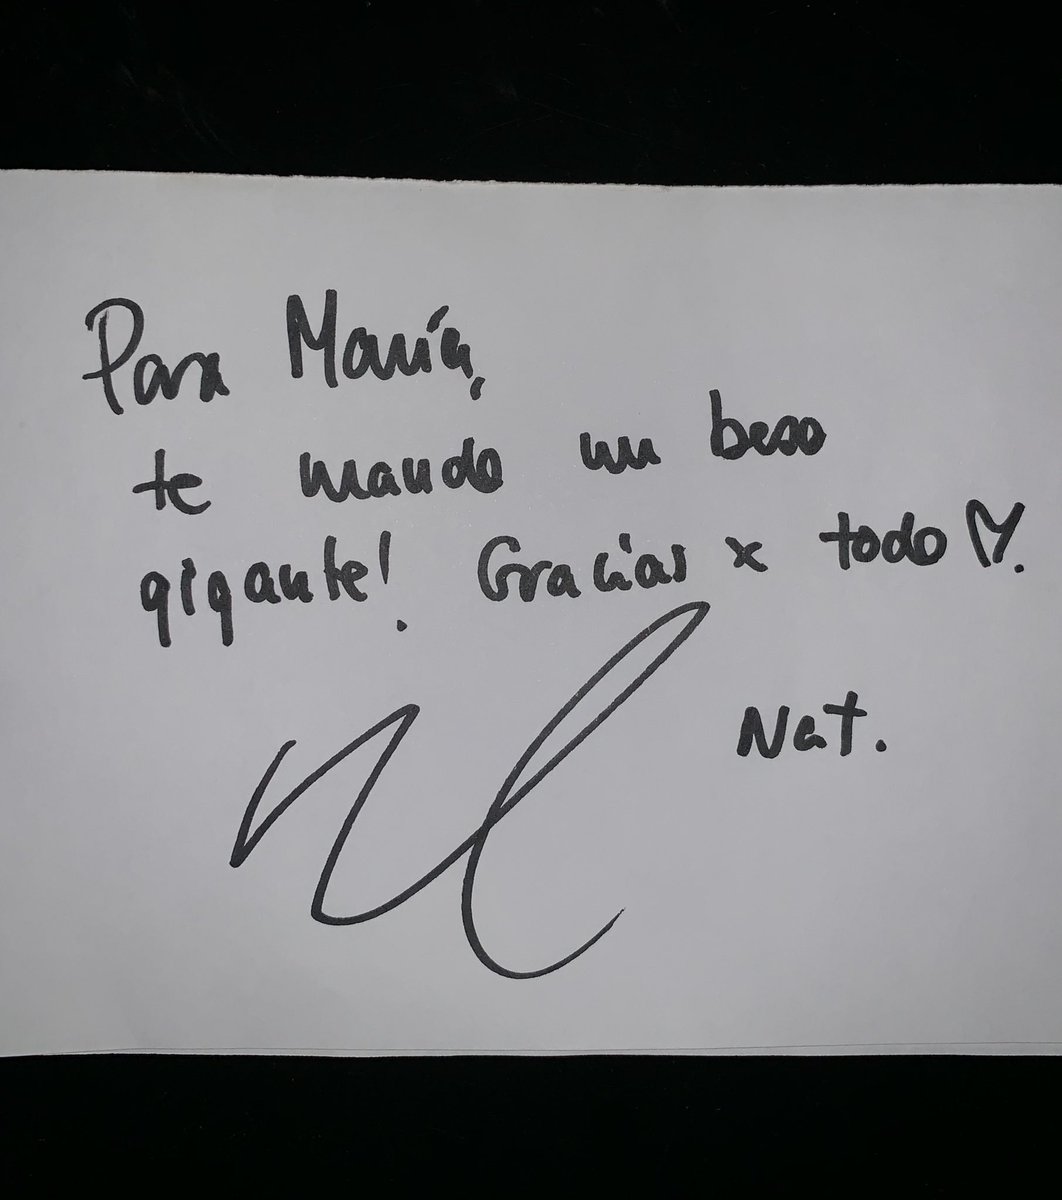 Para María,
te mando un beso
gigante! Gracias x todo ♡.
Nat.